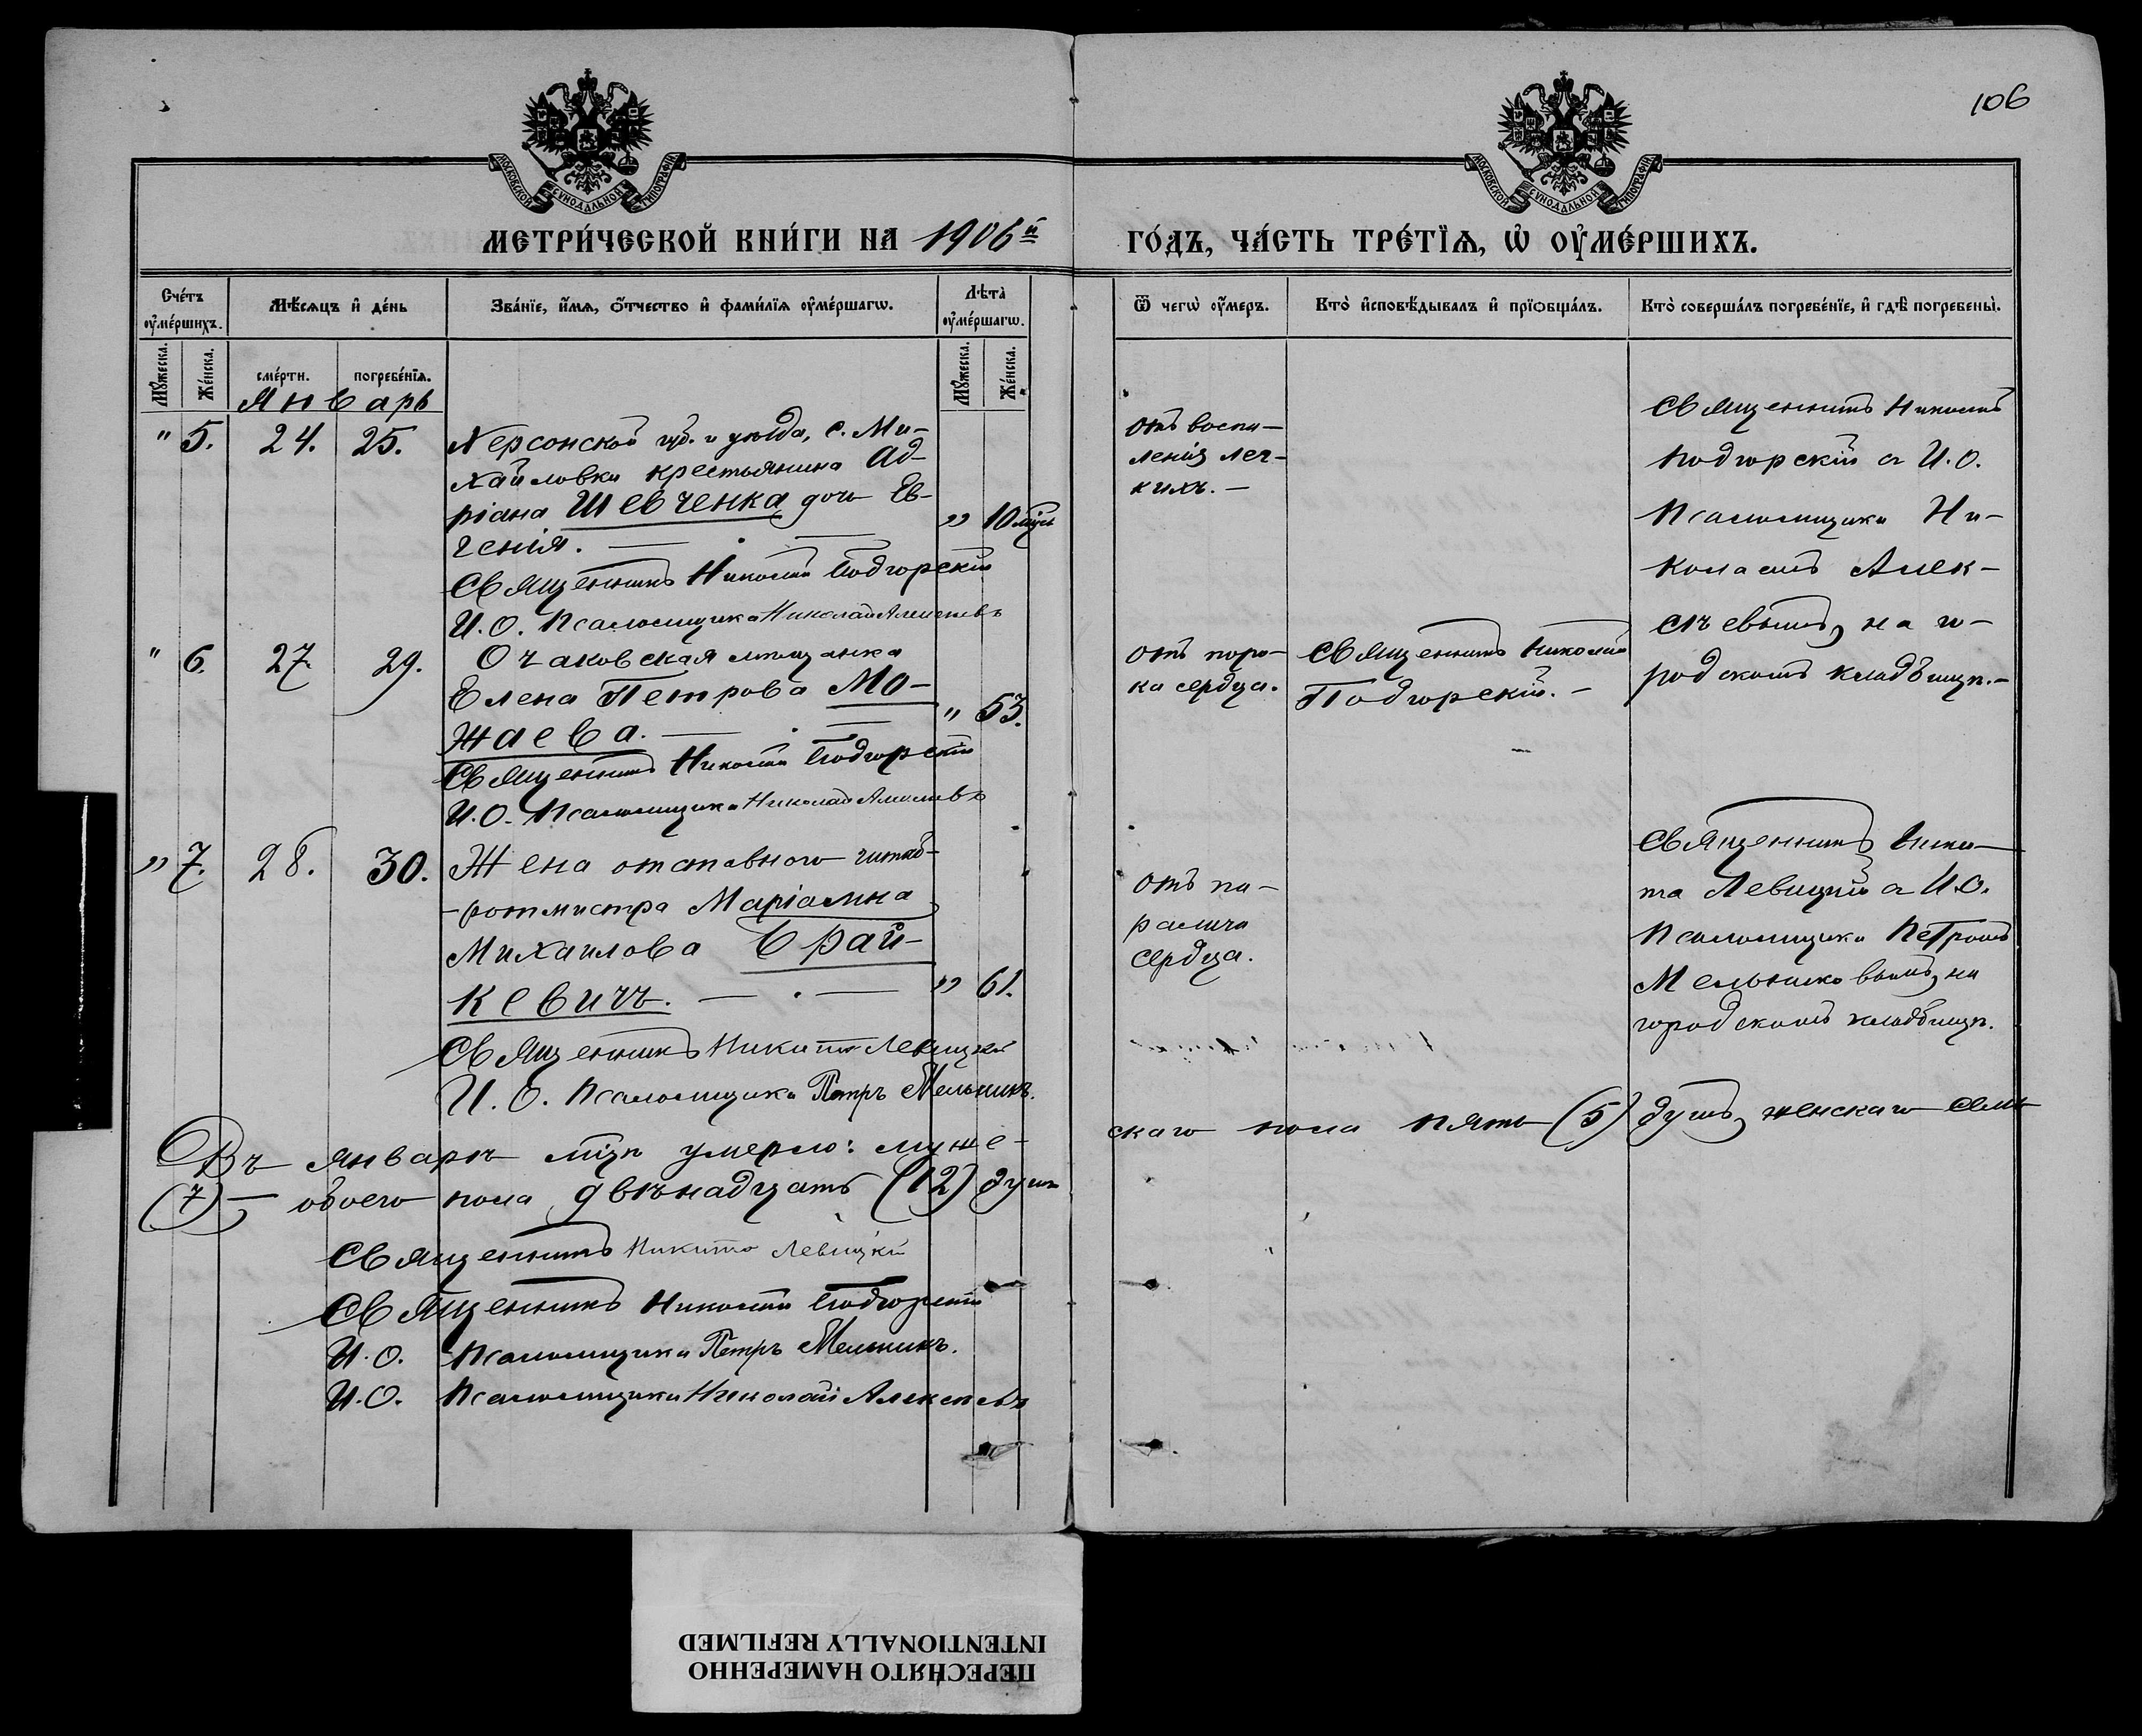 106
МОСКОВСКОЙ СѴНОДАЛЬНОЙ ТИПОГРАФІИ
МОСКОВСКОЙ СѴНОДАЛЬНОЙ ТИПОГРАФІИ
МЕТРИ́ЧЕСКОЙ КНИ́ГИ НА 1906й
ГО́ДЪ, ЧА́СТЬ ТРЕ́ТЇѦ, Ѡ҆ ОУ҆МЕ́РШИХЪ.
Сче́тъ оу҆ме́ршихъ.
Мѣ́сяцъ и҆ де́нь
Зва́нїе, и҆́мѧ, ѻ҆́тчество и҆ фами́лїѧ оу҆ме́ршагѡ.
Лѣта̀ оу҆ме́ршагѡ.
Ѿ чегѡ̀ оу҆́меръ.
Кто̀ и҆сповѣ́дывалъ и҆ прїобща́лъ.
Кто̀ соверша́лъ погребе́нїе, и҆ гдѣ̀ погребены̀.
Мꙋ́жеска.
Же́нска.
сме́рти.
погребе́нїѧ.
Мꙋ́жеска.
Же́нска.
Январь
" 5. 24. 25. Херсонской губ. и уѣзда, с. Ми-
хайловки крестьянина Ад-
ріана Шевченка дочь Ев-
генія. — " 10 мѣс.
Священникъ Николай Подгорскій
И. О. Псаломщика Николай Алексѣевъ
отъ воспа-
ленія лег-
кихъ. —
Священникъ Николай
Подгорскій съ И. О.
Псаломщика Ни-
колаемъ Алек-
сѣевымъ, на го-
родскомъ кладбищѣ. —
" 6. 27. 29. Очаковская мѣщанка
Елена Петрова Мо-
жаева. — " 53.
Священникъ Николай Подгорскій
И. О. Псаломщика Николай Алексѣевъ
отъ поро-
ка сердца.
Священникъ Николай
Подгорскій. —
" 7. 28. 30. Жена отставного штаб-
-ротмистра Маріамна
Михаилова
кевичъ. — " 61.
Священникъ Никита Левицкій
И. О. Псаломщика Петръ Мельникъ.
отъ па-
ралича
сердца.
Священникъ Ники-
та Левицкій съ И. О.
Псаломщика Петромъ
Мельниковымъ, на
городскомъ кладбищѣ.
Въ январѣ мѣсѣ умерло: муже-
скаго пола пять (5) душъ, женскаго семь
(7) — обоего пола двѣнадцать (12) душъ
Священникъ Никита Левицкій
Священникъ Николай Подгорскій
И. О. Псаломщика Петръ Мельникъ.
И. О. Псаломщика Николай Алексѣевъ
ПЕРЕСНЯТО НАМЕРЕННО
INTENTIONALLY REFILMED